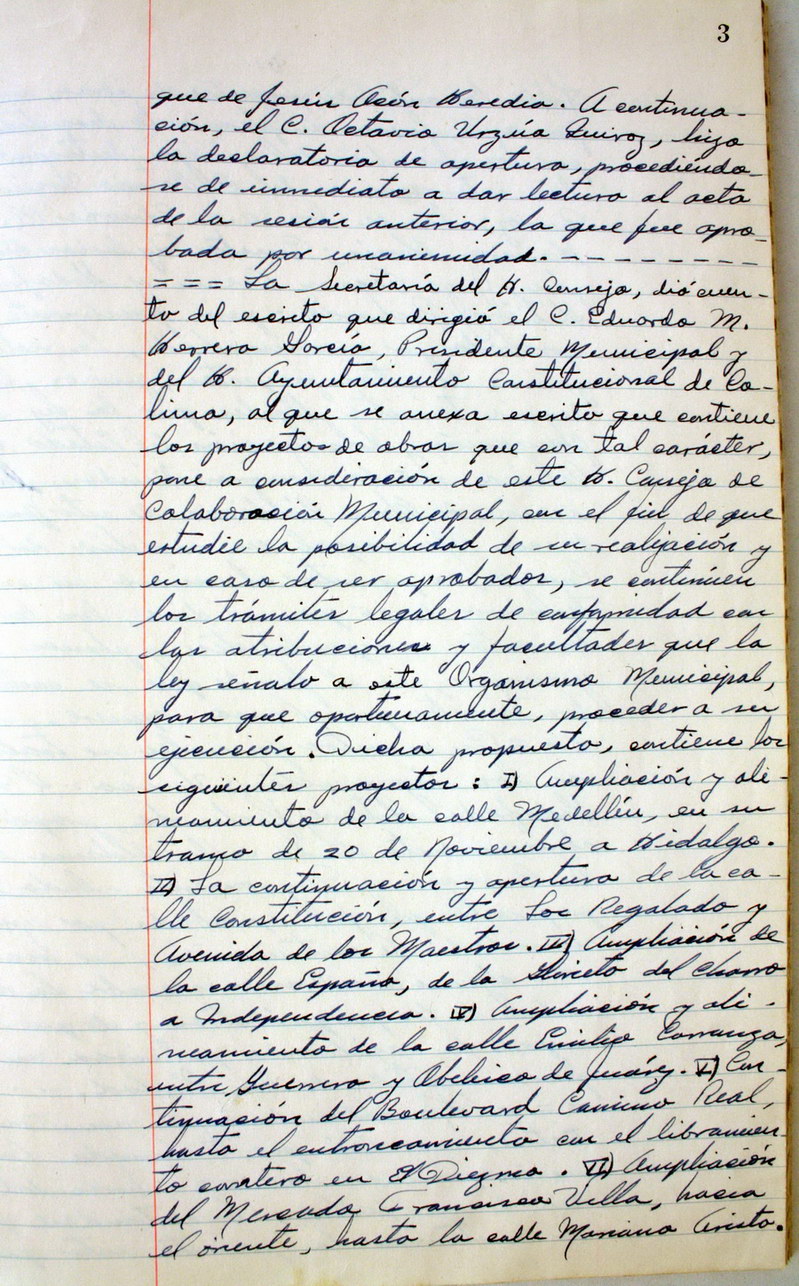 3
que de Jesús Ocón Heredia. A continua-
ción, el C. Octavio Urzúa Quiroz, hizo
la declaratoria de apertura, procediéndo-
se de inmediato a dar lectura al acta
de la sesión anterior, la que fue apro-
bada por unanimidad. - - - - - - - - -
= = = La Secretaría del H. Consejo, dió cuen-
ta del escrito que dirigió el C. Eduardo M.
Herrera García, Presidente Municipal y
del H. Ayuntamiento Constitucional de Co-
lima, al que se anexa escrito que contiene
los proyectos de obras que con tal carácter,
pone a consideración de este H. Consejo de
Colaboración Municipal, con el fin de que
estudie la posibilidad de su realización y
en caso de ser aprobados, se continúen
los trámites legales de conformidad con
las atribuciones y facultades que la
ley señala a este Organismo Municipal,
para que oportunamente, proceder a su
ejecución. Dicha propuesta, contiene los
siguientes proyectos: I) Ampliación y ali-
neamiento de la calle Medellín, en su
tramo de 20 de Noviembre a Hidalgo.
II) La continuación y apertura de la ca-
lle Constitución, entre Los Regalado y
Avenida de los Maestros. III) Ampliación de
la calle España, de la Glorieta del Charro
a Independencia. IV) Ampliación y ali-
neamiento de la calle Emilio Carranza,
entre Guerrero y Obelisco de Juárez. V) Con-
tinuación del Boulevard Camino Real,
hasta el entroncamiento con el libramien-
to carretero en El Diezmo. VI) Ampliación
del Mercado Francisco Villa, hacia
el oriente, hasta la calle Mariano Arista.